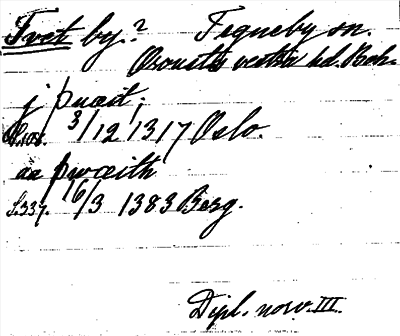 Tvet by? Tegneby sn.
Orousts västra hd. Boh.
j þuæit;
S. 108. 3/12 1317 Oslo.
aa þwæith
S. 337. 16/3 1383 Berg.
Dipl. norv. III.